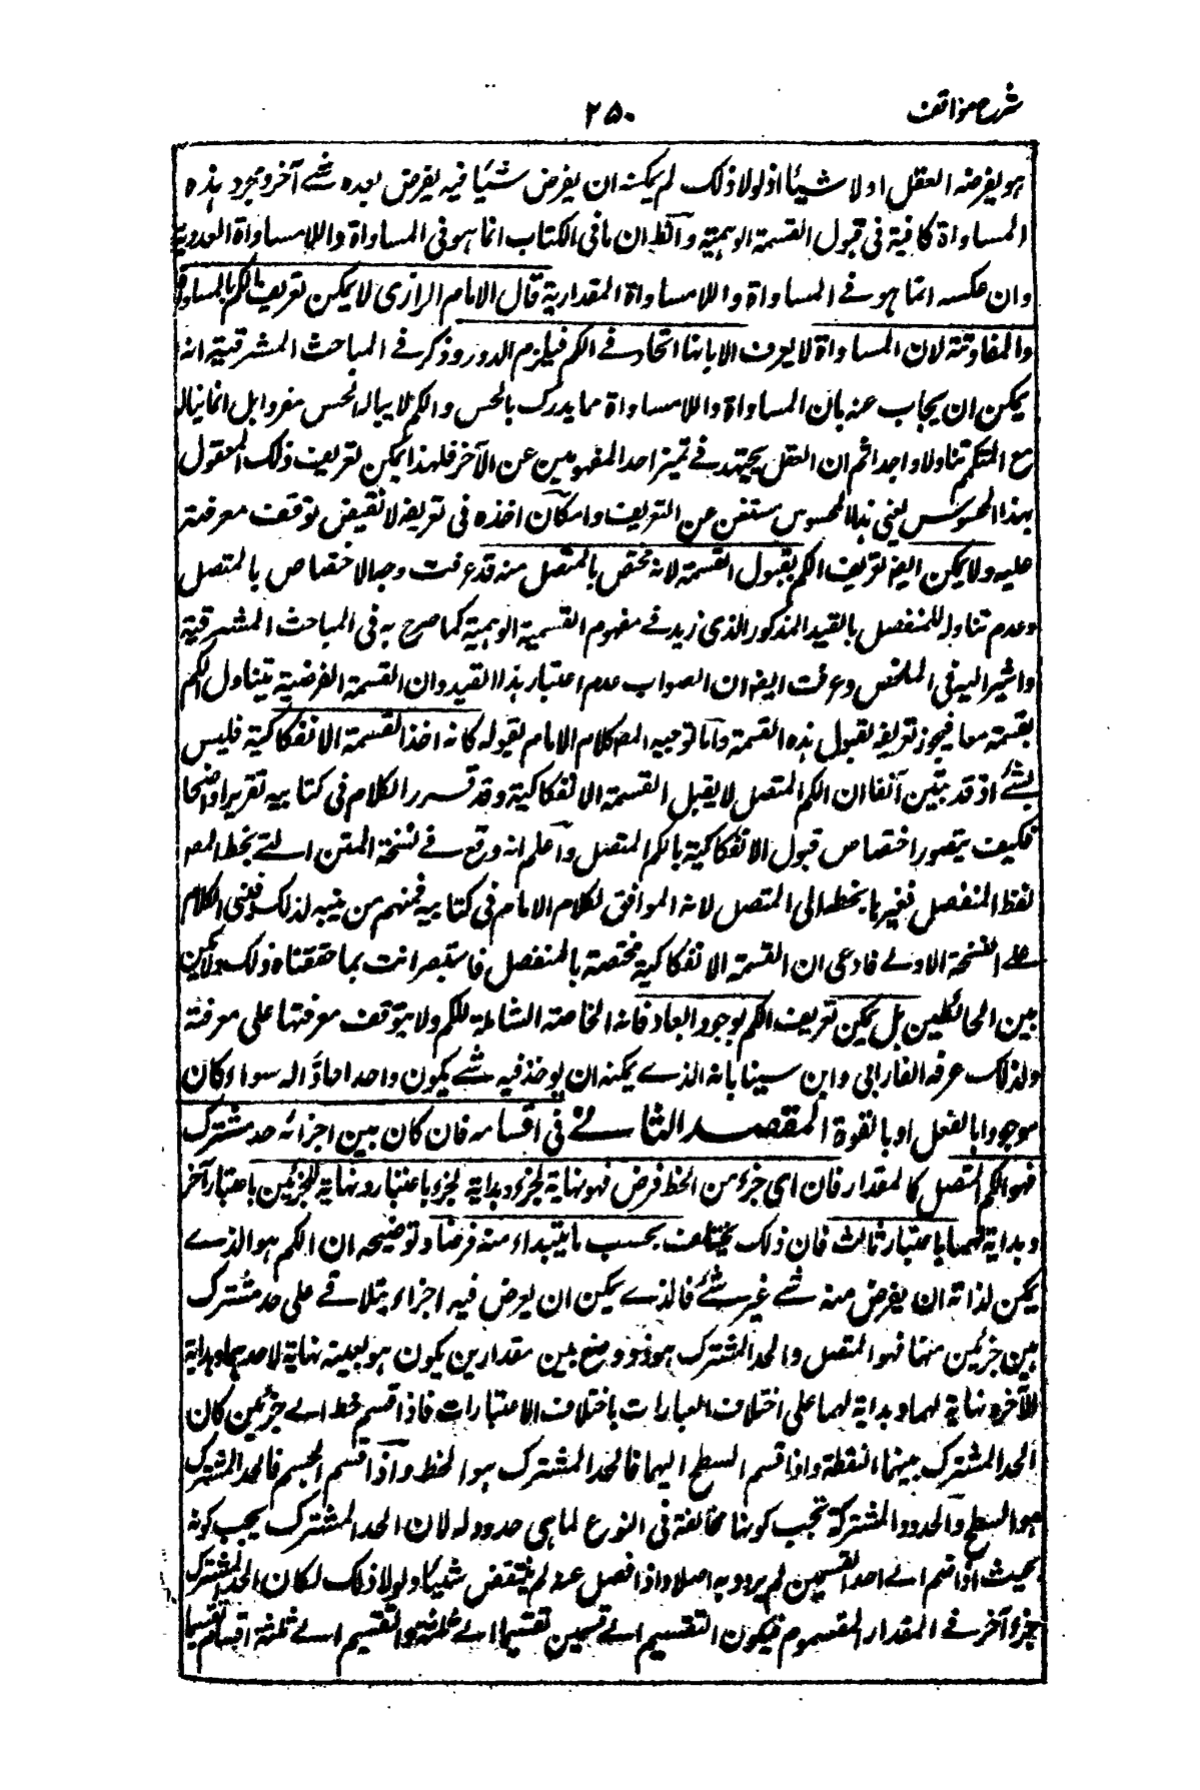 شرح مواقف
۲۵۰
هو یفرضہ العقل اولا شیئا اذ لولا ذلک لم یمکنہ ان یفرض شیئا فیہ یفرض بعدہ شے آخر و مجرد ہذہ
المساواة کافیة فی قبول القسمة الوہمیة والظ ان ما فی الکتاب انما ہو فی المساواة واللامساواة العددیة
وان عکسہ انما ہو فے المساواة واللامساواة المقداریة قال الامام الرازی لا یمکن تعریف الکم بالمساواة
والمفاوتة لان المساواة لا یعرف الا بانہا اتحاد فے الکم فیلزم الدور وذکر فے المباحث المشرقیة انہ
یمکن ان یجاب عنہ بان المساواة واللامساواة مما یدرک بالحس والکم لا ینالہ الحس مفردا بل انما ینالہ
مع المتکمم تناولا واحدا ثم ان العقل یجتہد فے تمیز احد المفہومین عن الآخر فلہذا یمکن تعریف ذلک المعقول
بہذا المحسوس یعنی ہذا المحسوس مستغن عن التعریف وامکان اخذہ فی تعریفہ لا تقیض توقف معرفتہ
علیہ ولا یمکن ایضا تعریف الکم بقبول القسمة لانہ مختص بالمتصل منہ قد عرفت وجہ الاختصاص بالمتصل
وعدم تناولہ للمنفصل بالقید المذکور الذی زید فے مفہوم القسمة الوہمیة کما صرح بہ فی المباحث المشرقیة
واشیر الیہ فی الملخص وعرفت ایضا ان الصواب عدم اعتبار ہذا القید وان القسمة الفرضیة یتناول الکم
بقسمیہ معا فیجوز تعریفہ بقبول ہذہ القسمة واما توجیہ المص کلام الامام بقولہ کانہ اخذ القسمة الانفکاکیة فلیس
بشئے اذ قد تبین آنفا ان الکم المتصل لا یقبل القسمة الانفکاکیة وقد قرر الکلام فی کتابیہ تقریرا واضحا
فکیف یتصور اختصاص قبول الانفکاکیة بالکم المتصل واعلم انہ وقع فے نسخة المتن التے بخط المص
لفظ المنفصل فغیرہا بخطہ الی المتصل لانہ الموافق لکلام الامام فی کتابیہ فمنہم من یتنبہ لذلک فبنی الکلام
علے النسخة الاولے فادعی ان القسمة الانفکاکیة مختصة بالمنفصل فاستبصر انت بما حققناہ ذلک ولا تکن
بین الحائلین بل یمکن تعریف الکم بوجود العاد فانہ الخاصة الشاملة للکم ولا یتوقف معرفتہا علی معرفتہ
ولذلک عرفہ الفارابی وابن سینا بانہ الذے یمکنہ ان یوخذ فیہ شے یکون واحدا عادًّا لہ سواء کان
موجودا بالفعل او بالقوة المقصد الثانے فی اقسامہ فان کان بین اجزائہ حد مشترک
فہو الکم المتصل کالمقدار فان ای جزء من الخط فرض فہو نہایة لجزء وبدایة لجزء باعتبار ونہایة للجزئین باعتبار آخر
وبدایة لہما باعتبار ثالث فان ذلک یختلف بحسب ما یبتداء منہ فرضا وتوضیحہ ان الکم ہو الذے
یمکن لذاتہ ان یفرض منہ شے غیر شئے فالذے یمکن ان یعرض فیہ اجزاء یتلاقے علی حد مشترک
بین جزئین منہا فہو المتصل والحد المشترک ہو ذو وضع بین مقدارین یکون ہو بعینہ نہایة لاحدہما وبدایة
للآخر ونہایة لہما وبدایة لہما علی اختلاف العبارات باختلاف الاعتبارات فاذا قسم خط الے جزئین کان
الحد المشترک بینہما النقطة واذا قسم السطح الیہما فالحد المشترک ہو الخط واذا قسم الجسم فالحد المشترک
ہو السطح والحدود المشترکة یجب کونہا مخالفة فی النوع لما ہی حدود لہ لان الحد المشترک یجب کونہ
بحیث اذا ضم الے احد القسمین لم یزد بہ اصلا واذا فصل عنہ لم ینتقص شیئا ولولا ذلک لکان الحد المشترک
جزء آخر فے المقدار المقسوم فیکون التقسیم الے قسمین تقسیما الے ثلثة والتقسیم الے ثلثة اقسام تقسیما